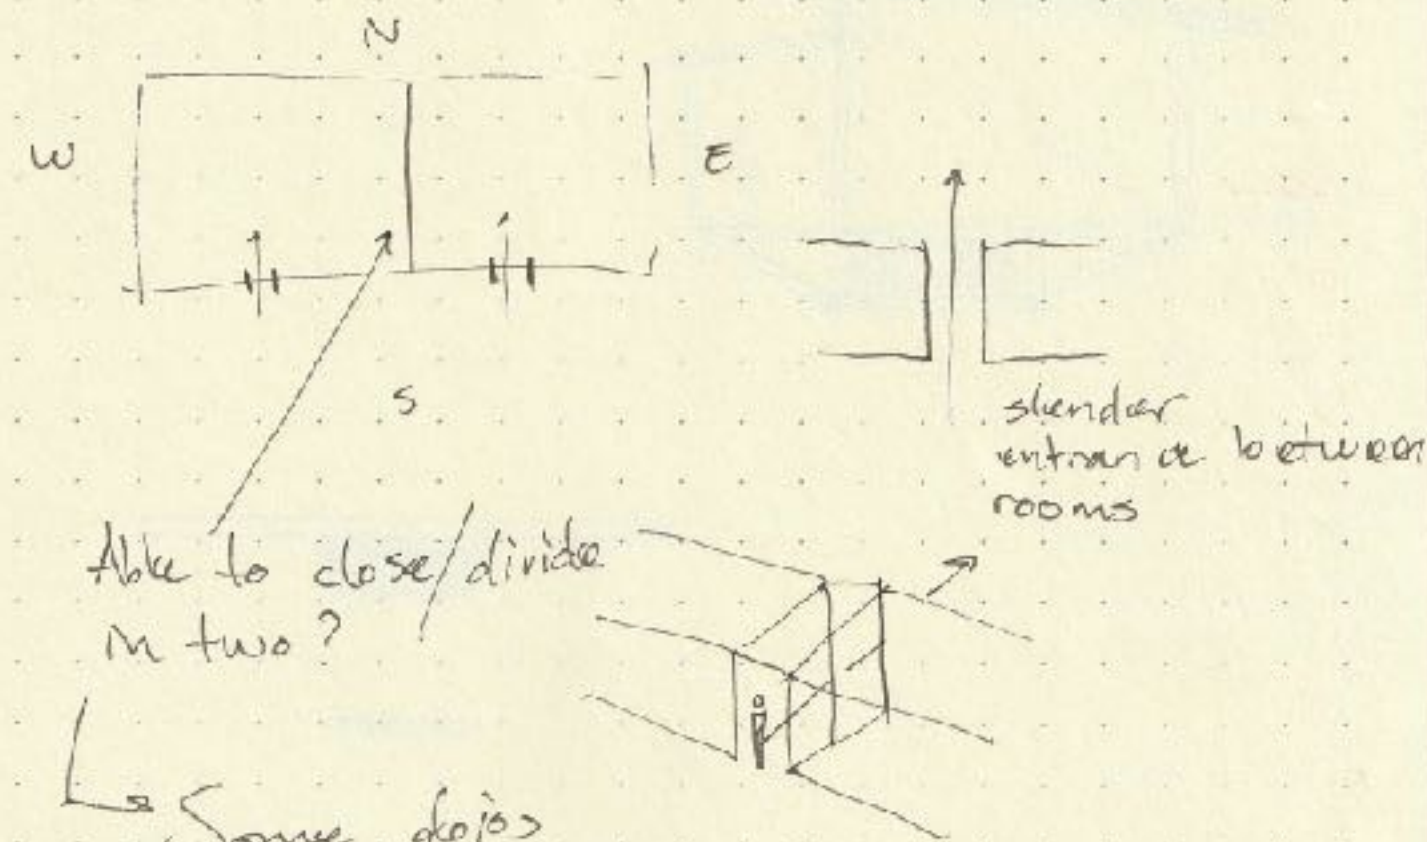 N
W
E
S
slender
entrance between
rooms
Able to close/divide
in two?
Some dojos